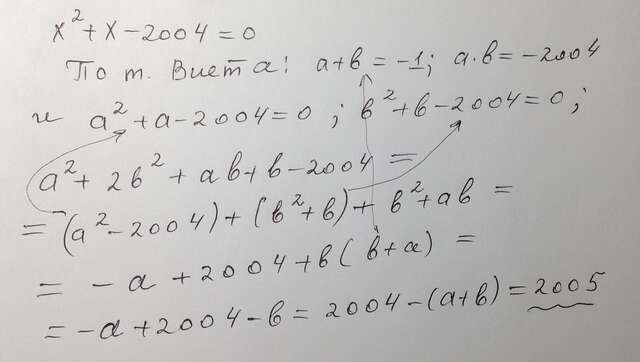 x² + x - 2004 = 0
По т. Виета: a+b = -1; a·b = -2004
и a² + a - 2004 = 0 ; b² + b - 2004 = 0 ;
a² + 2b² + ab + b - 2004 =
= (a² - 2004) + (b² + b) + b² + ab =
= - a + 2004 + b( b + a) =
= -a + 2004 - b = 2004 - (a+b) = 2005